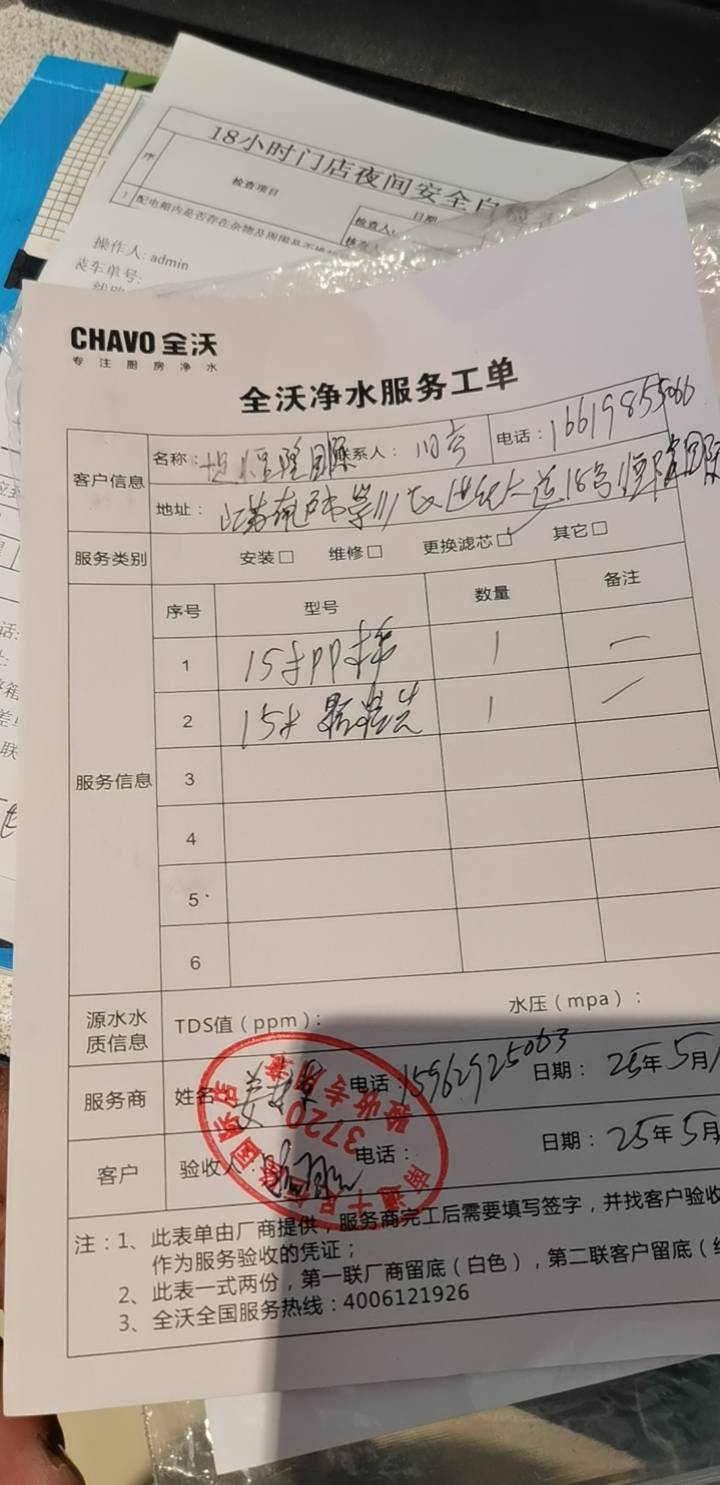 18小时门店夜间安全自
序
检查项目
日期
检查人:
1
配电箱内是否存在杂物及周围是否堆
操作人: admin
装车单号:
CHAVO 全沃
专注厨房净水
全沃净水服务工单
客户信息
名称:
联系人:
电话:16619855066
地址:
世纪大道18号恒隆国际
服务类别
安装□
维修□
更换滤芯□
其它□
服务信息
序号
型号
数量
备注
1
15寸PP棉
1
一
2
15寸
1
一
3
4
5
6
源水水质信息
TDS值(ppm):
水压(mpa):
服务商
姓名:
电话:15962925063
日期:25年5月
客户
验收人:
电话:
日期:25年5月
3720
验收专用章
注:1、此表单由厂商提供,服务商完工后需要填写签字,并找客户验收
作为服务验收的凭证;
2、此表一式两份,第一联厂商留底(白色),第二联客户留底(
3、全沃全国服务热线:4006121926